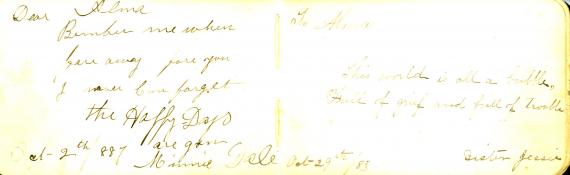 Dear Alma
Bember me when
far away fore you
I never can forget
the Happy Days
are gon
Oct- 2th/887
Minnie
To Alma
This world is all a bubble,
Full of grief and full of trouble
Sister Jessie
Oct-29th/83